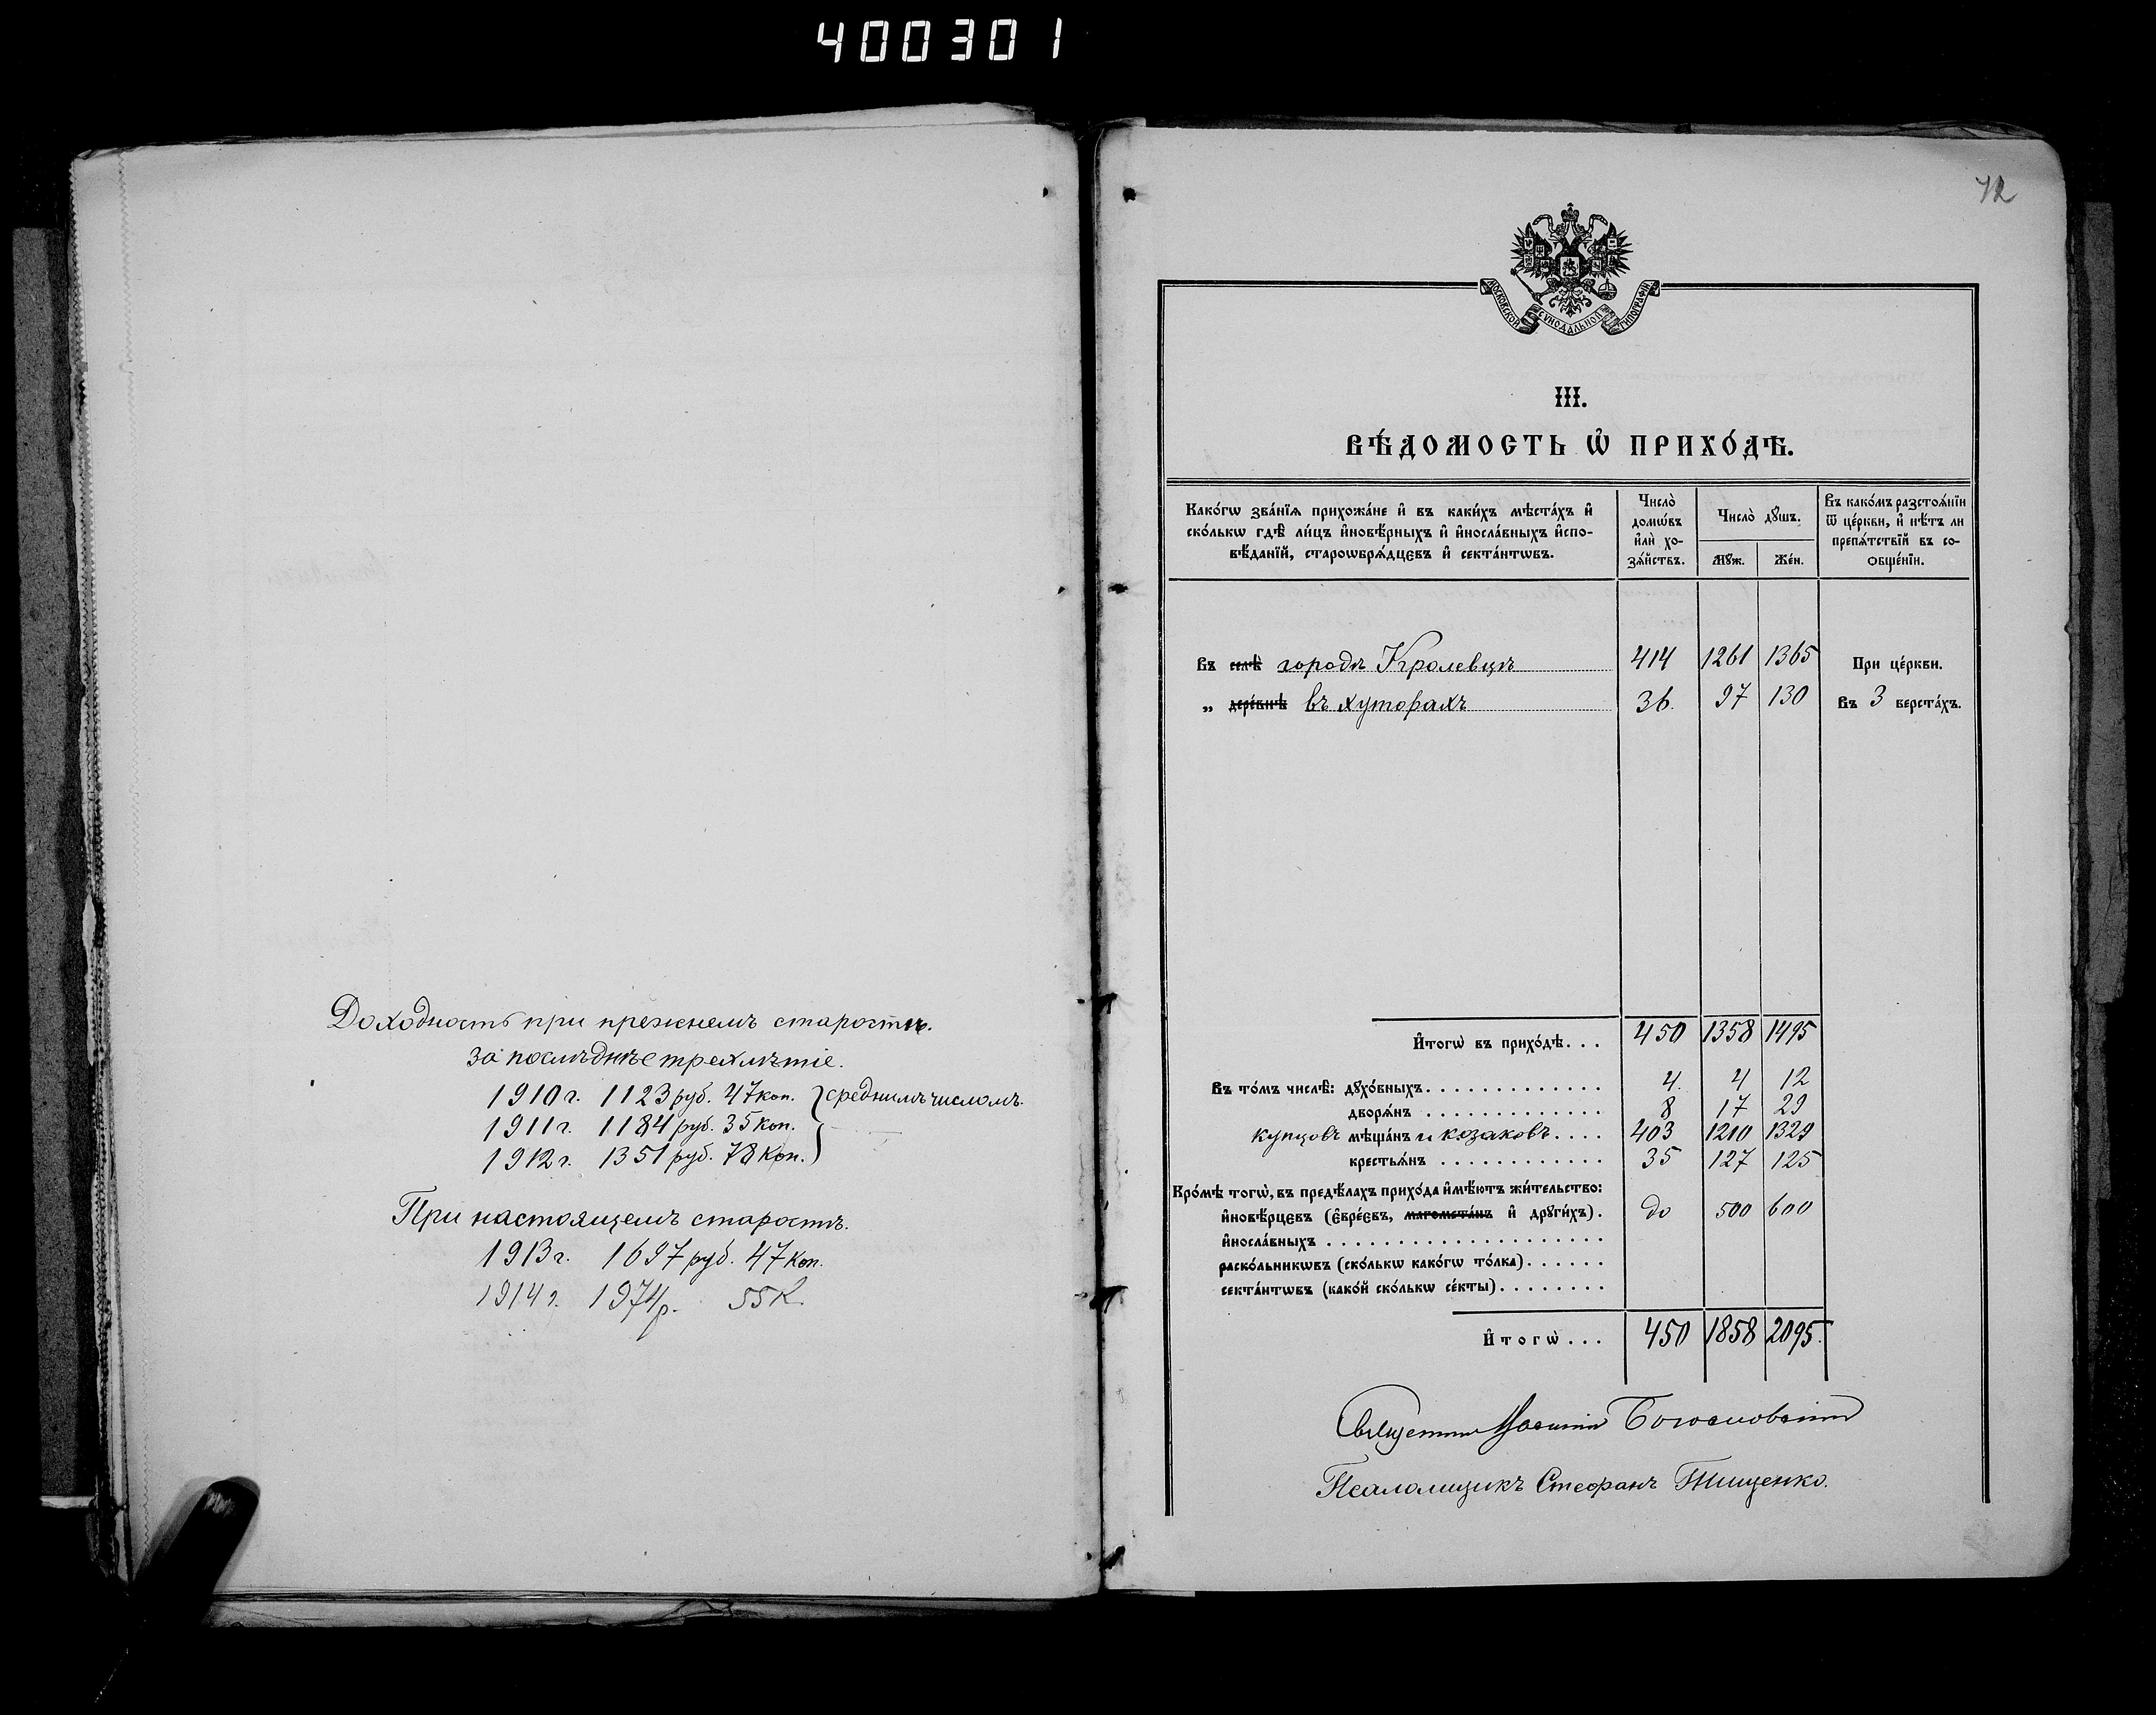 400301
Доходность при прежнемъ старостѣ.
за послѣднѣе трехлѣтіе.
1910 г. 1123 руб. 47 коп. } среднимъ числомъ.
1911 г. 1184 руб. 35 коп.
1912 г. 1351 руб. 78 коп.
При настоящемъ старостѣ.
1913 г. 1697 руб. 47 коп.
1914 г. 1974 р. 55 к.
72
МОСКОВСКОЙ СѴНОДАЛЬНОЙ ТИПОГРАФІИ
III.
ВѢ́ДОМОСТЬ Ѡ҆ ПРИХО́ДѢ.
Како́гѡ зва́нїѧ прихожа́не и҆ въ каки́хъ мѣста́хъ и҆
ско́лькѡ гдѣ̀ ли́цъ и҆новѣ́рныхъ и҆ и҆носла́вныхъ и҆спо-
вѣ́данїй, староѡбрѧ́дцевъ и҆ секта́нтѡвъ.
Число̀
домѡ́въ
и҆лѝ хо-
зѧ́йствъ.
Число̀ дꙋ́шъ.
Мꙋ́ж.
Же́н.
Въ како́мъ разстоѧ́нїи
ѿ це́ркви, и҆ нѣ́тъ ли
препѧ́тствїй въ со-
ѻбще́нїи.
Въ селѣ̀ городѣ Кролевцѣ 414 1261 1365 При це́ркви.
„ дере́внѣ въ хуторахъ 36. 97 130 Въ 3 верста́хъ.
И҆тогѡ̀ въ прихо́дѣ... 450 1358 1495
Въ то́мъ числѣ̀: дꙋхо́вныхъ............. 4. 4 12
дворѧ́нъ ............. 8 17 29
купцовъ мѣща́нъ и козаковъ.... 403 1210 1329
крестьѧ́нъ ............ 35 127 125
Кро́мѣ тогѡ̀, въ предѣ́лахъ прихо́да и҆мѣ́ютъ жи́тельство:
и҆новѣ́рцевъ (є҆вре́євъ, магомета́нъ и҆ дрꙋги́хъ). до 500 600
и҆носла́вныхъ .....................
раско́льникѡвъ (ско́лькѡ како́гѡ то́лка)......
секта́нтѡвъ (како́й ско́лькѡ се́кты)........
И҆тогѡ̀... 450 1858 2095.
Богословскій
Псаломщикъ Стефанъ Тищенко.